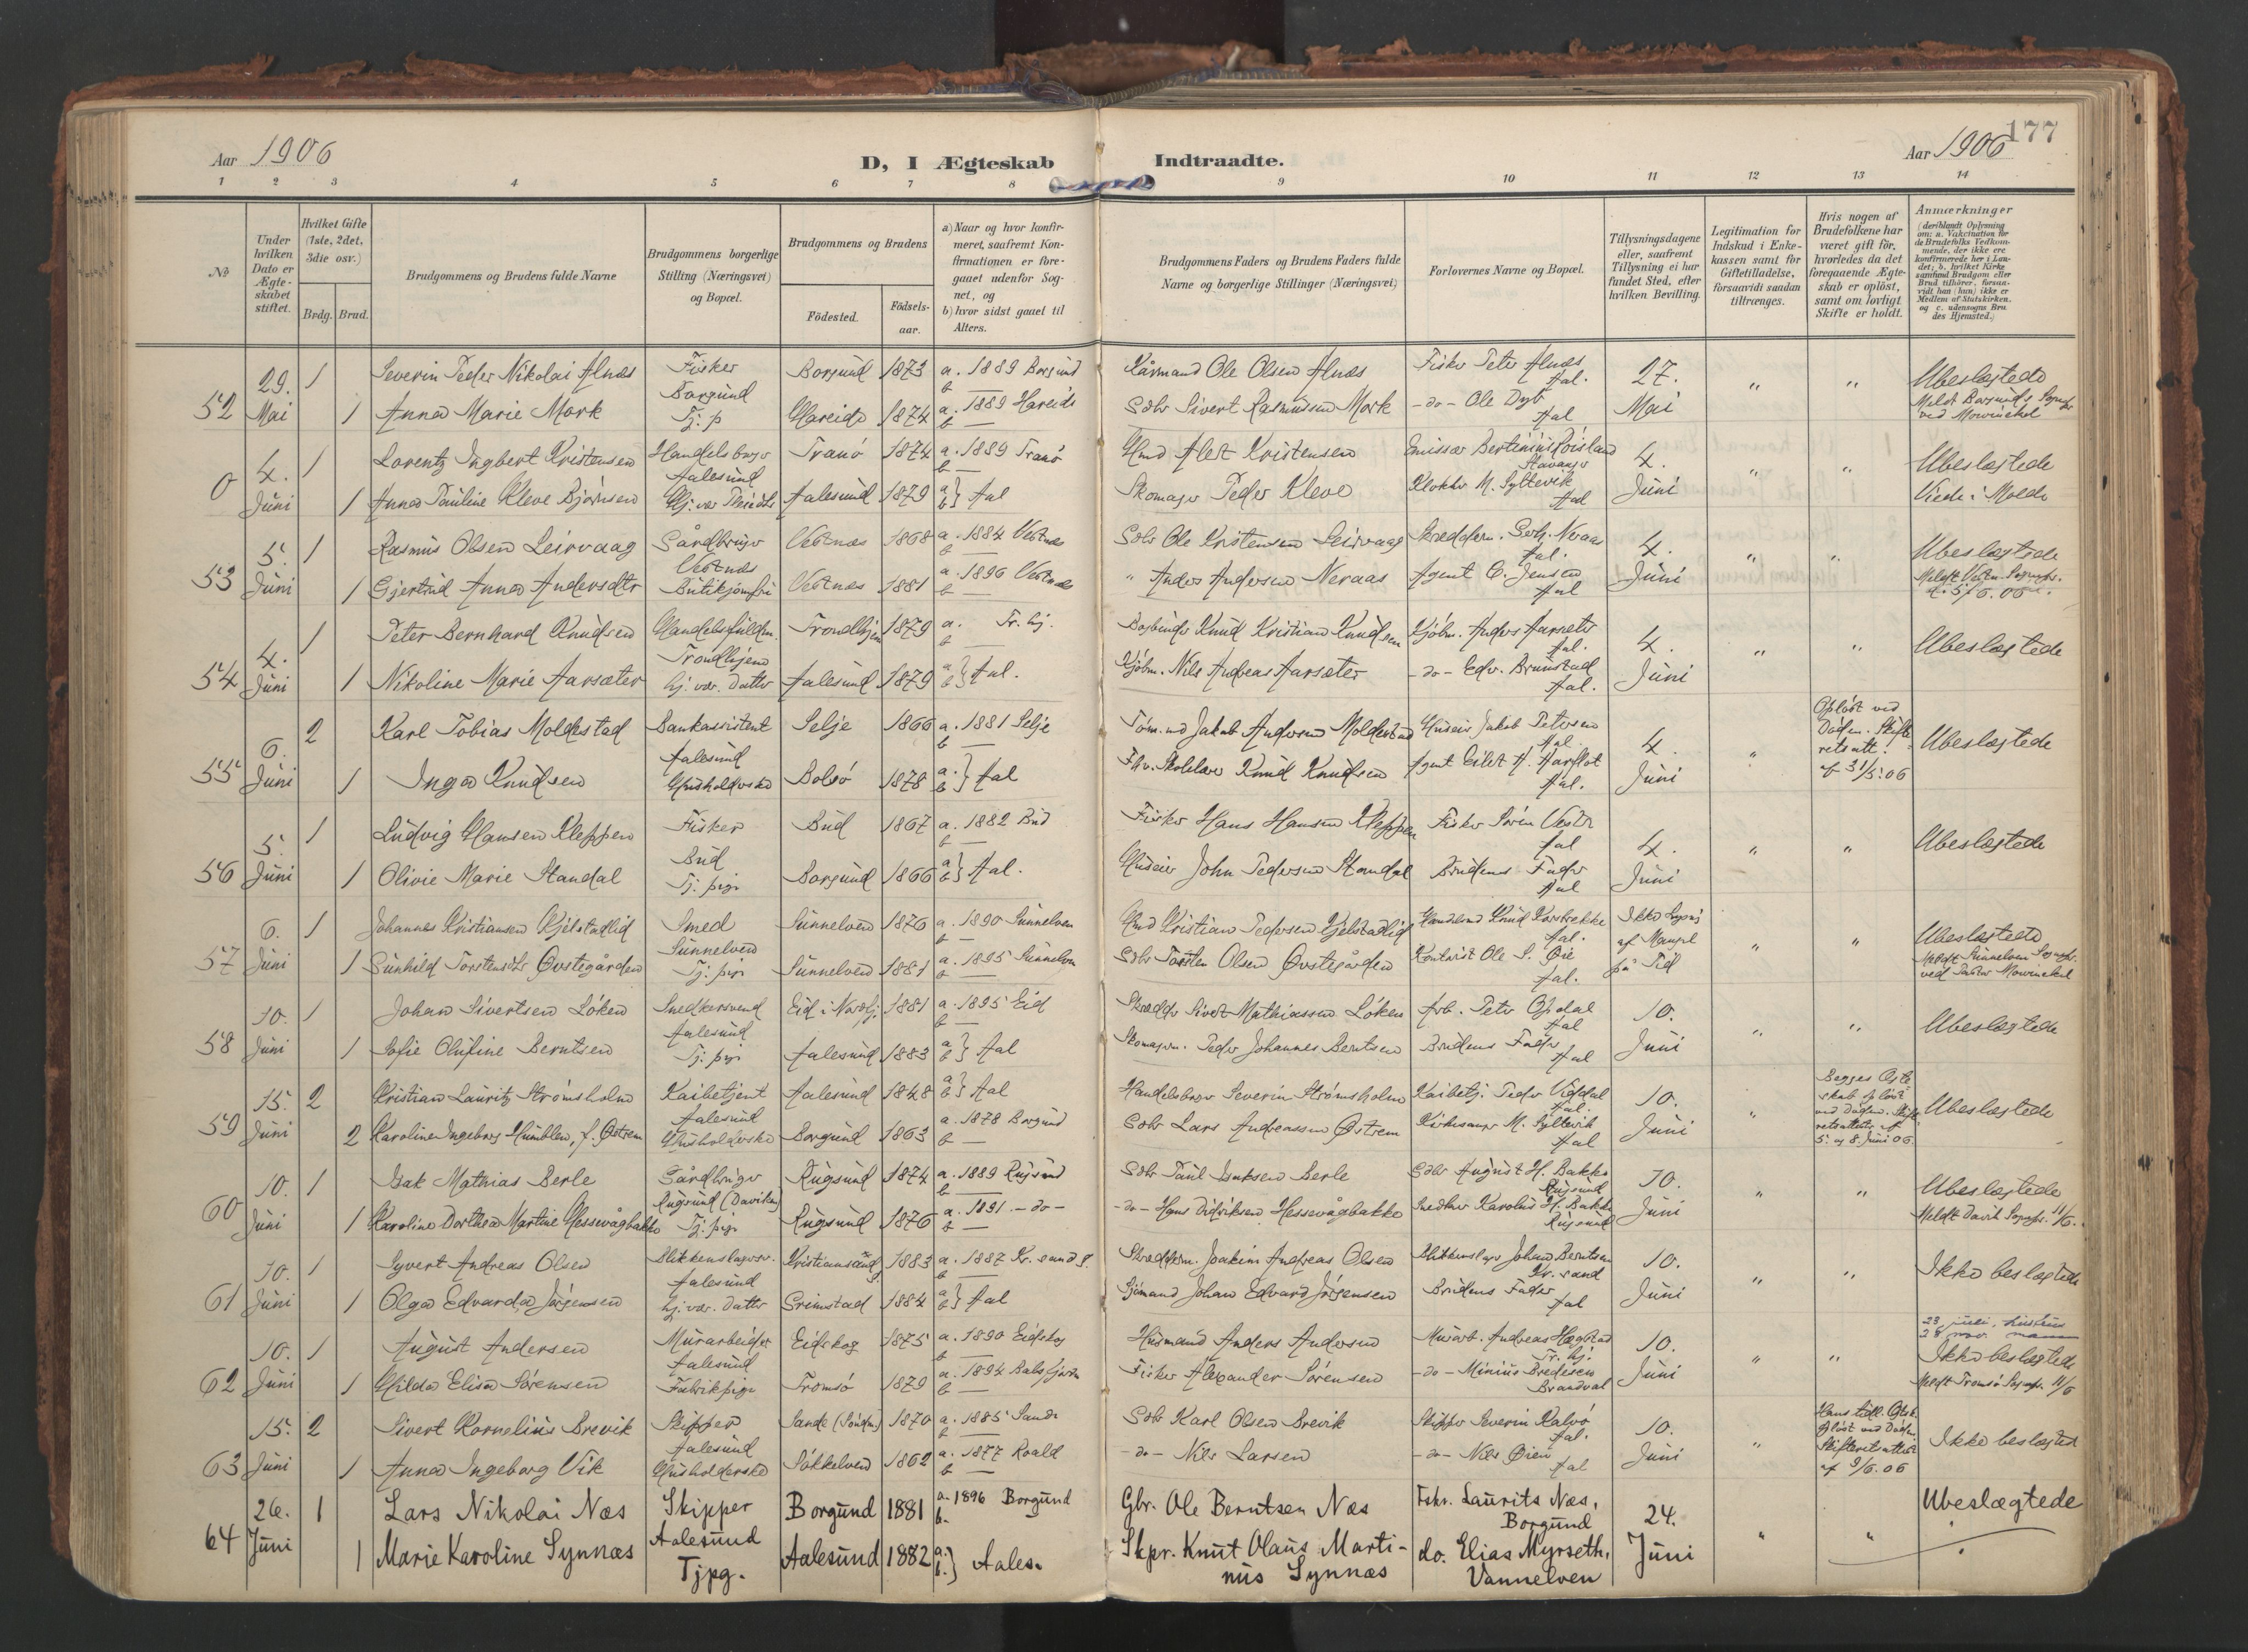 177
Aar 1906
D, I Ægteskab Indtraadte.
Aar 1906
1 2 3 4 5 6 7 8 9 10 11 12 13 14
№
Under hvilken Dato er Ægteskabet stiftet.
Hvilket Gifte (1ste, 2det, 3die osv.)
Brdg. Brud.
Brudgommens og Brudens fulde Navne
Brudgommens borgerlige Stilling (Næringsvei) og Bopæl.
Brudgommens og Brudens
Födested.
Födselsaar.
a) Naar og hvor konfirmeret, saafremt Konfirmationen er foregaaet udenfor Sognet, og
b) hvor sidst gaaet til Alters.
Brudgommens Faders og Brudens Faders fulde Navne og borgerlige Stillinger (Næringsvei)
Forlovernes Navne og Bopæl.
Tillysningsdagene eller, saafremt Tillysning ei har fundet Sted, efter hvilken Bevilling.
Legitimation for Indskud i Enkekassen samt for Giftetilladelse, forsaavidt saadan tiltrænges.
Hvis nogen af Brudefolkene har været gift för, hvorledes da det foregaaende Ægteskab er oplöst, samt om lovligt Skifte er holdt.
Anmærkninger
(deriblandt Oplysning om: a. Vakcination for de Brudefolks Vedkommende, der ikke ere konfirmerede her i Landet; b. hvilket Kirkesamfund Brudgom eller Brud tilhörer, forsaavidt han (hun) ikke er Medlem af Statskirken, og c. udensogns Brudes Hjemsted.)
52 29. Mai 1 Severin Peder Nikolai Alnæs Fisker Borgund Borgund 1873 a. 1889 Borgund b — Kårmand Ole Olsen Alnæs Fisker Peter Alnæs Aal. 27. Mai " " Ubeslægtede
1 Anna Marie Mork Tj: p Hareide 1874 a. 1889 Hareide b — Gdbr Sivert Rasmussen Mork -do- Ole Dyb Aal Meldt Borgunds Sognepr. ved Mowinckel
0 4. Juni 1 Lorentz Ingbert Kristensen Handelsbrgr Aalesund Tranö 1874 a. 1889 Tranö b — Hmd Alet Kristensen Emissær Stavanger 4. Juni " " Ubeslægtede
1 Anna Pauline Kleve Bjørnsen Aalesund 1879 a b } Aal Skomager Peder Kleve Klokker M. Syltevik Aal Viede i Molde
53 5. Juni 1 Rasmus Olsen Leirvaag Gårdbruger Vestnæs Vestnæs 1868 a. 1884 Vestnæs b — Gdbr Ole Kristensen Leirvaag Skredderm. Neraas Aal. 4. Juni " " Ubeslægtede
1 Gjertrud Anna Andersdtr Butikjomfru Vestnæs 1881 a. 1896 Vestnæs b — " Anders Andersen Neraas Agent C. Jensen Aal Meldt Sognepr. d. 5/6. 06.
54 4. Juni 1 Peter Bernhard Knudsen Handelsfuldm. Trondhjem Trondhjem 1879 a. Tr. hj. b — Bogbinder Knud Kristian Knudsen Kjöbm. Anders Aarsæter Aal. 4. Juni " " Ubeslægtede
1 Nikoline Marie Aarsæter hj. vær. datter Aalesund 1879 a b } Aal. Kjöbm. Nils Andreas Aarsæter -do- Edv. Brunstad Aal.
55 6. Juni 2 Karl Tobias Moldestad Bankassistent Aalesund Selje 1866 a. 1881 Selje b — Jakob Andersen Moldestad Huseier Jakob Petersen Aal. 4. Juni " Oplöst ved Döden. Skifteretsatt. af 31/5.06 Ubeslægtede
1 Inga Knudsen Husholderske Bolsö 1878 a. b. } Aal Fhv. Skolelærer Knud Knudsen Agent Eilert H. Aarflot Aal.
56 5. Juni 1 Ludvig Hansen Kleppen Fisker Bud Bud 1867 a. 1882 Bud b — Fisker Hans Hansen Kleppen Fisker Sörin Aal 4. Juni " " Ubeslægtede
1 Olivie Marie Standal Tj: pige Borgund 1866 a b } Aal. Huseier John Pedersen Standal Brudens Fader Aal
57 6. Juni 1 Johannes Kristiansen Kjelstadlid Smed Sunnelven Sunnelven 1876 a. 1890 Sunnelven b — Hmd Kristian Pedersen Kjelstadlid Knud Korsbrekke Aal. Ikke lyst af Mangel på Tid " " Ubeslægtede
1 Gunhild Torstensdtr Øvstegården Tj: pige Sunnelven 1881 a. 1895 Sunnelven b — Gdbr Torsten Olsen Øvstegården Kontorist Ole S. Øie Aal. Meldt Sunnelven Sognepr. ved Pastor Mowinckel
58 10. Juni 1 Johan Sivertsen Löken Snedkersvend Aalesund Eid i Nordfj. 1881 a. 1895 Eid b — Skrædder Sivert Mathiassen Löken Arb. Peter Opdal Aal 10. Juni " " Ubeslægtede
1 Sofie Olufine Berntsen Tj: pige Aalesund 1883 a b } Aal Skomager. Peder Johannes Berntsen Brudens Fader Aal
59 15. Juni 2 Kristian Lauritz Strömsholm Kaibetjent Aalesund Aalesund 1848 a b } Aal Handelsborger Severin Strömsholm Kaibetj. Peder Viddal Aal. 10. Juni " Begges Ægteskab oplöst ved Döden. Skifteretsattester af 5. og 8. Juni 06. Ubeslægtede
2 Karoline Ingeborg Humblen, f. Østrem Husholderske Borgund 1863 a. 1878 Borgund b — Gdbr Lars Andreassen Østrem Kirkesanger M. Syltevik Aal
60 10. Juni 1 Isak Mathias Berle Gårdbruger Rugsund (Daviken) Rugsund 1874 a. 1889 Rugsund b — Gdbr Paul Isaksen Berle Gdbr August H. Bakke Rugsund 10. Juni " " Ubeslægtede
1 Karoline Dorthea Martine Hessevågbakke Tj: pige Rugsund 1876 a. 1891 -do- b — -do- Hans Didriksen Hessevågbakke Snedker Karolus H. Bakke Rugsund Meldt Davik Sognepr. 11/6.
61 10. Juni 1 Syvert Andreas Olsen Blikkenslagersv. Aalesund Kristiansand S. 1883 a. 1887 Kr. sand S. b — Skredderm. Joakim Andreas Olsen Blikkenslager Johan Berntsen Kr. sand 10. Juni " " Ikke beslægtede
1 Olga Edvarda Jörgensen hj. vær. datter Grimstad 1884 a b } Aal Sjömand Johan Edvard Jörgensen Brudens Fader Aal
62 10. Juni 1 August Andersen Murarbeider Aalesund Eidskog 1875 a. 1890 Eidskog b — Husmand Anders Andersen Murarb. Andreas Hægstad Tr. hj. 10. Juni " " Ikke beslægtede
1 Hilda Elisa Sörensen Fabrikpige Tromsö 1879 a. 1894 Balsfjorden b — Fisker Alexander Sörensen -do- Minius Bredesen Brandval Meldt Tromsö Sognepr. 11/6
63 15. Juni 2 Sivert Kornelius Brevik Skipper Aalesund Sande (Söndm.) 1870 a. 1885 Sande b — Gdbr Karl Olsen Brevik Skipper Severin Kalvö Aal. 10. Juni " Hans tidl. Ægtsk. oplöst ved Döden. Skifteretsattest af 9/6.06 Ikke beslægtet
1 Anna Ingeborg Vik Husholderske Sökkelven 1862 a. 1877 Roald b — -do- Nils Larsen -do- Nils Øien Aal
64 26. Juni 1 Lars Nikolai Næs Skipper Aalesund Borgund 1881 a. 1896 Borgund b. Gbr. Ole Berntsen Næs Fskr. Laurits Næs, Borgund 24. Juni " " Ubeslægtede
1 Marie Karoline Synnæs Tjpg. Aalesund 1882 a. b. } Aales. Skpr. Knut Olaus Martinus Synnæs do. Elias Myrseth, Vannelven